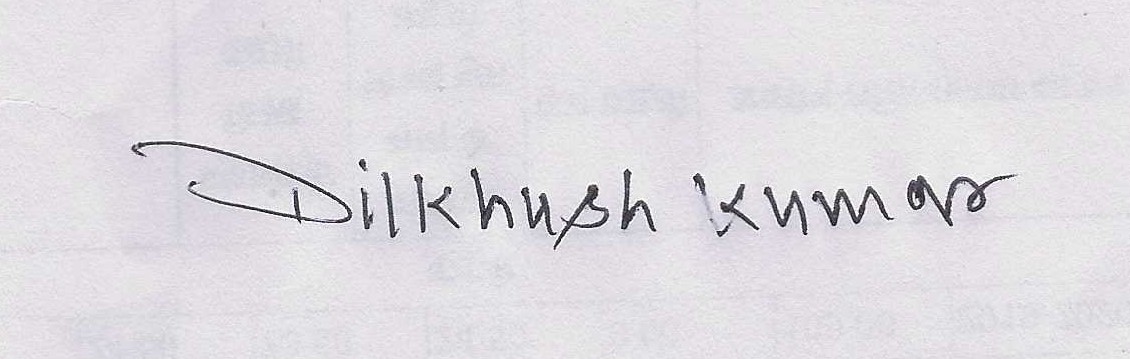 Dilkhush Kumar